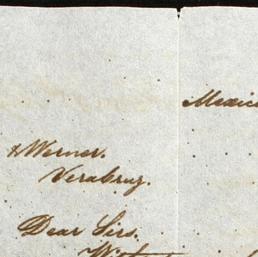 Mexico
& Werner.
Veracruz.
Dear Sirs.